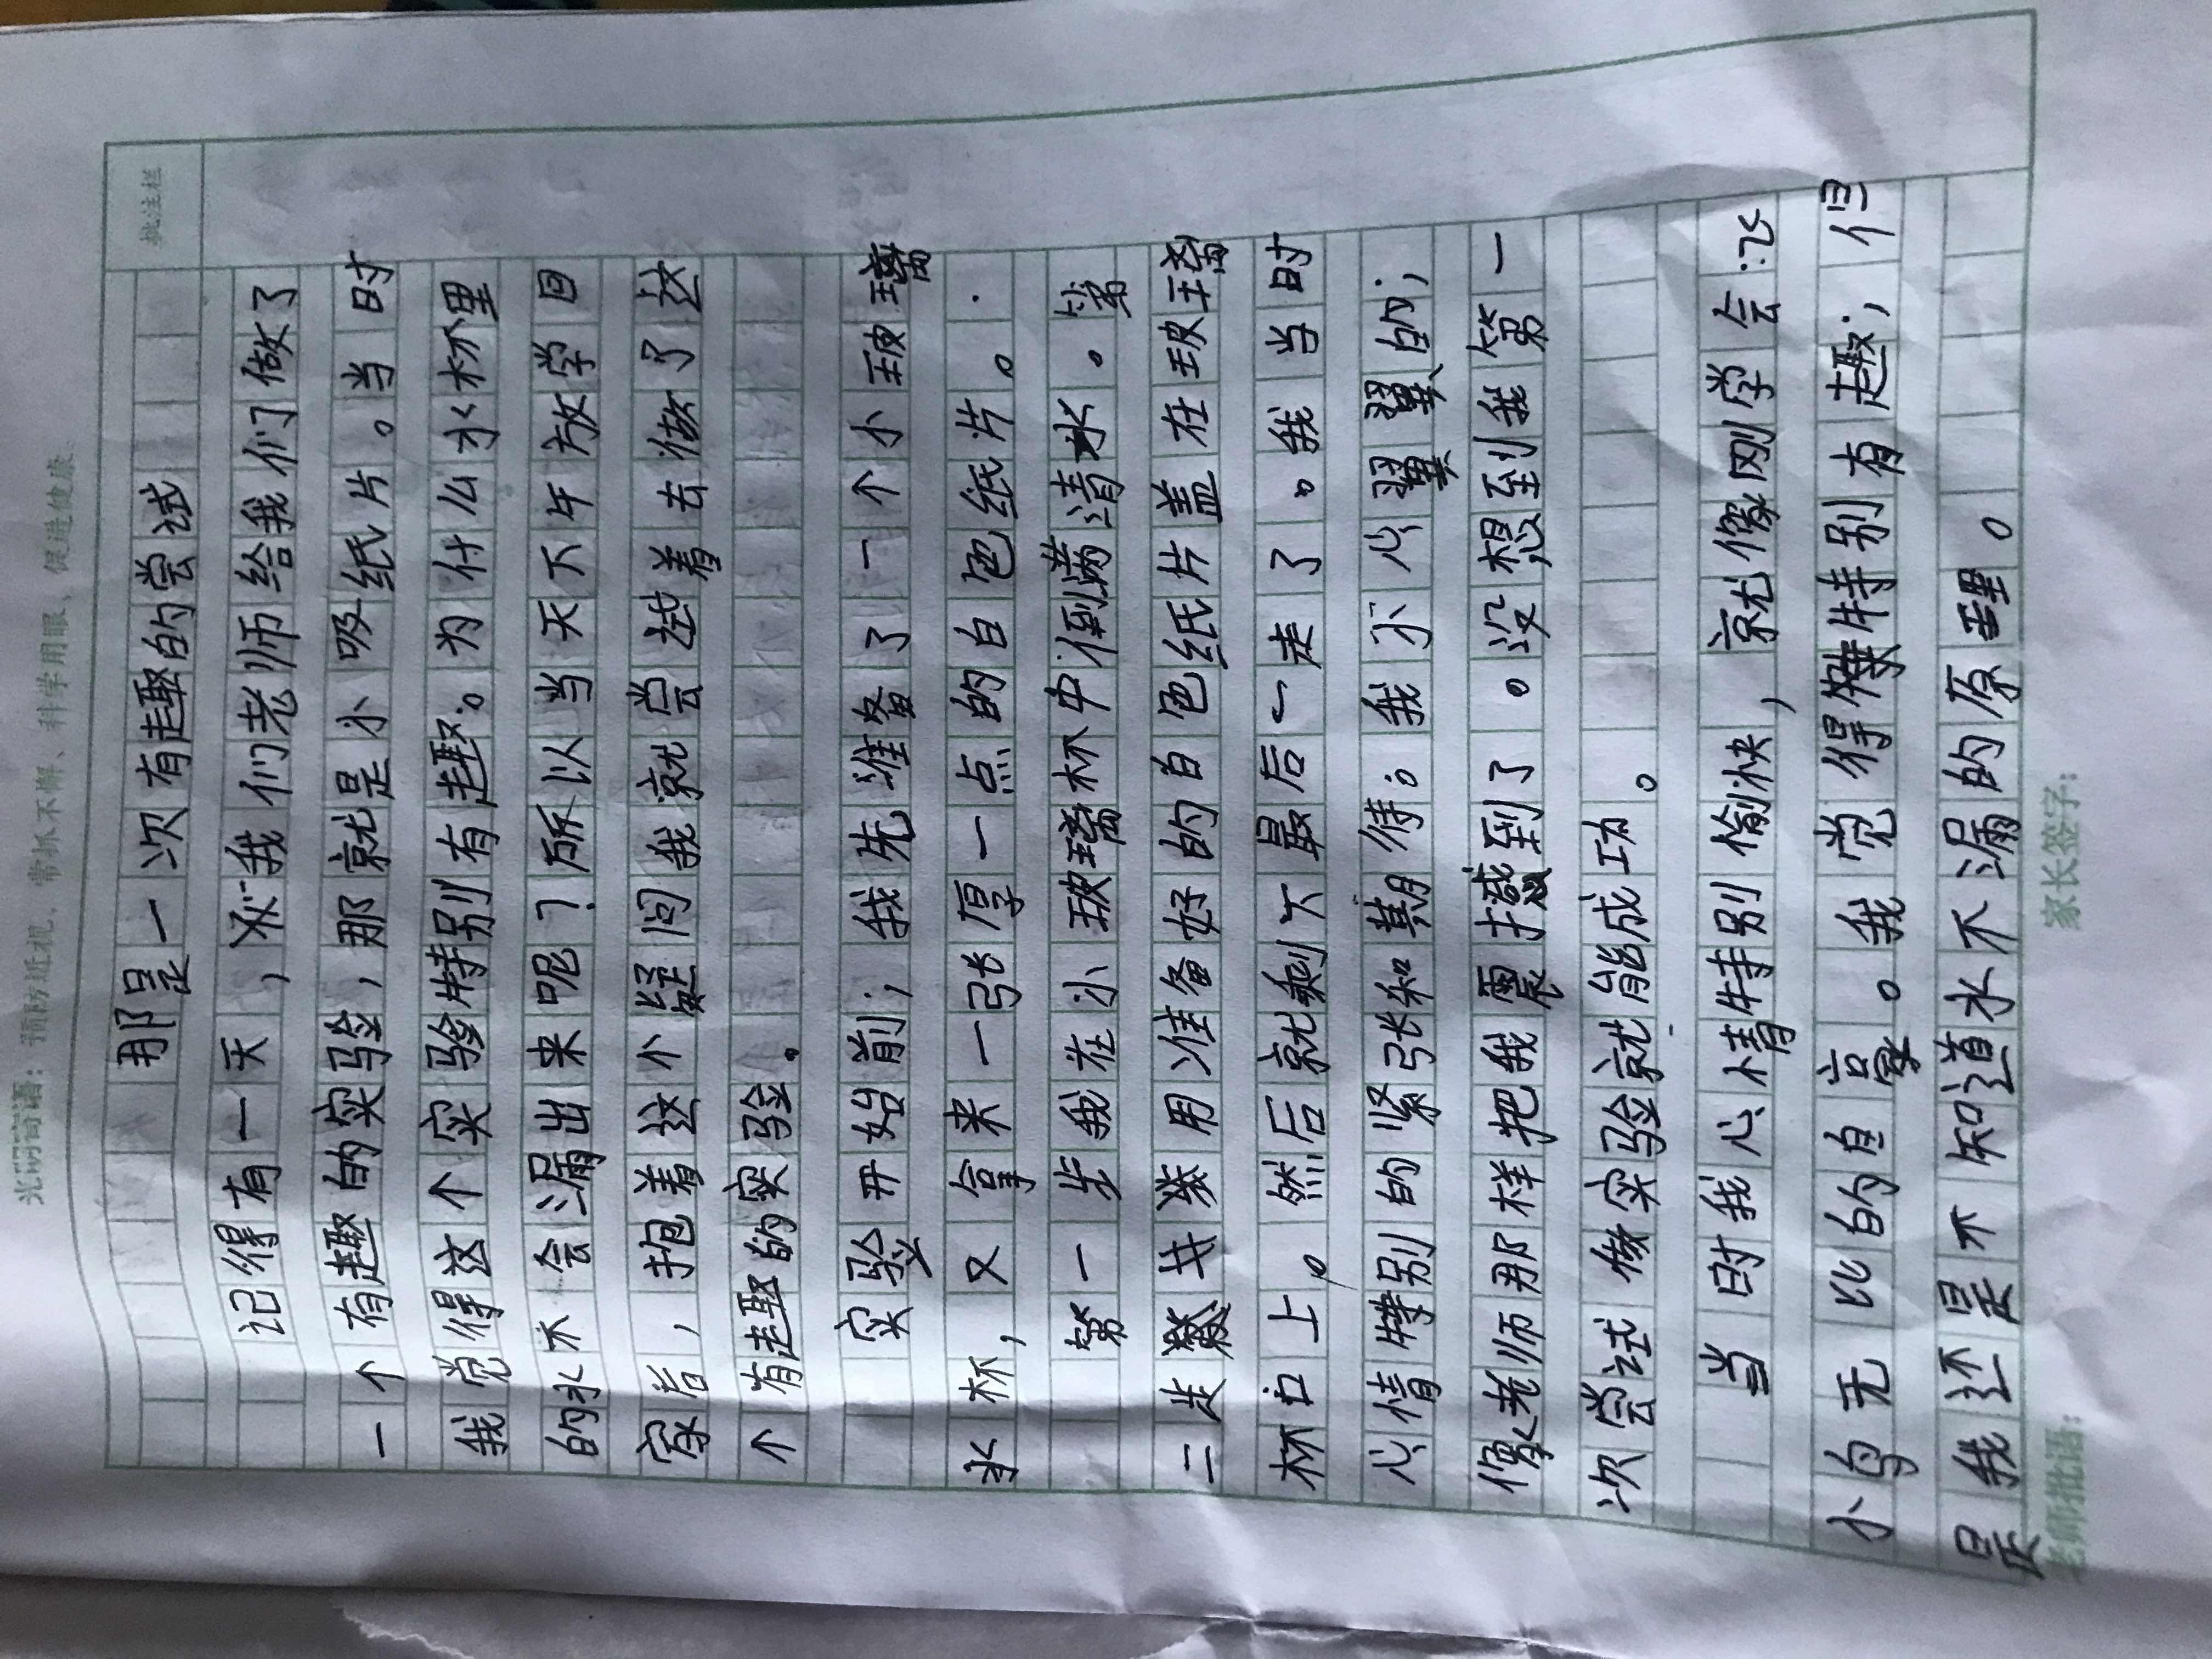 光明寄语：预防近视、常抓不懈、科学用眼、促进健康
批注栏
那是一次有趣的尝试
记得有一天，我们老师给我们做了
一个有趣的实验，那就是小吸纸片。当时
我觉得这个实验特别有趣。为什么水杯里
的水不会漏出来呢？所以当天下午放学回
家后，抱着这个疑问我就尝试着去做了这
个有趣的实验。
实验开始前，我先准备了一个小玻璃
水杯，又拿来一张厚一点的白色纸片。
第一步我在小玻璃杯中倒满清水。第
二步 用准备好的白色纸片盖在玻璃
杯口上。然后就剩下最后一走了。我当时
心情特别的紧张和期待。我小心翼翼的，
像老师那样把我震撼到了。没想到我第一
次尝试做实验就能成功。
当时我心情特别愉快，就像刚学会飞
小鸟无比的自豪。我觉得特别有趣，但
是我还是不知道水不漏的原理。
老师批语：
家长签字：